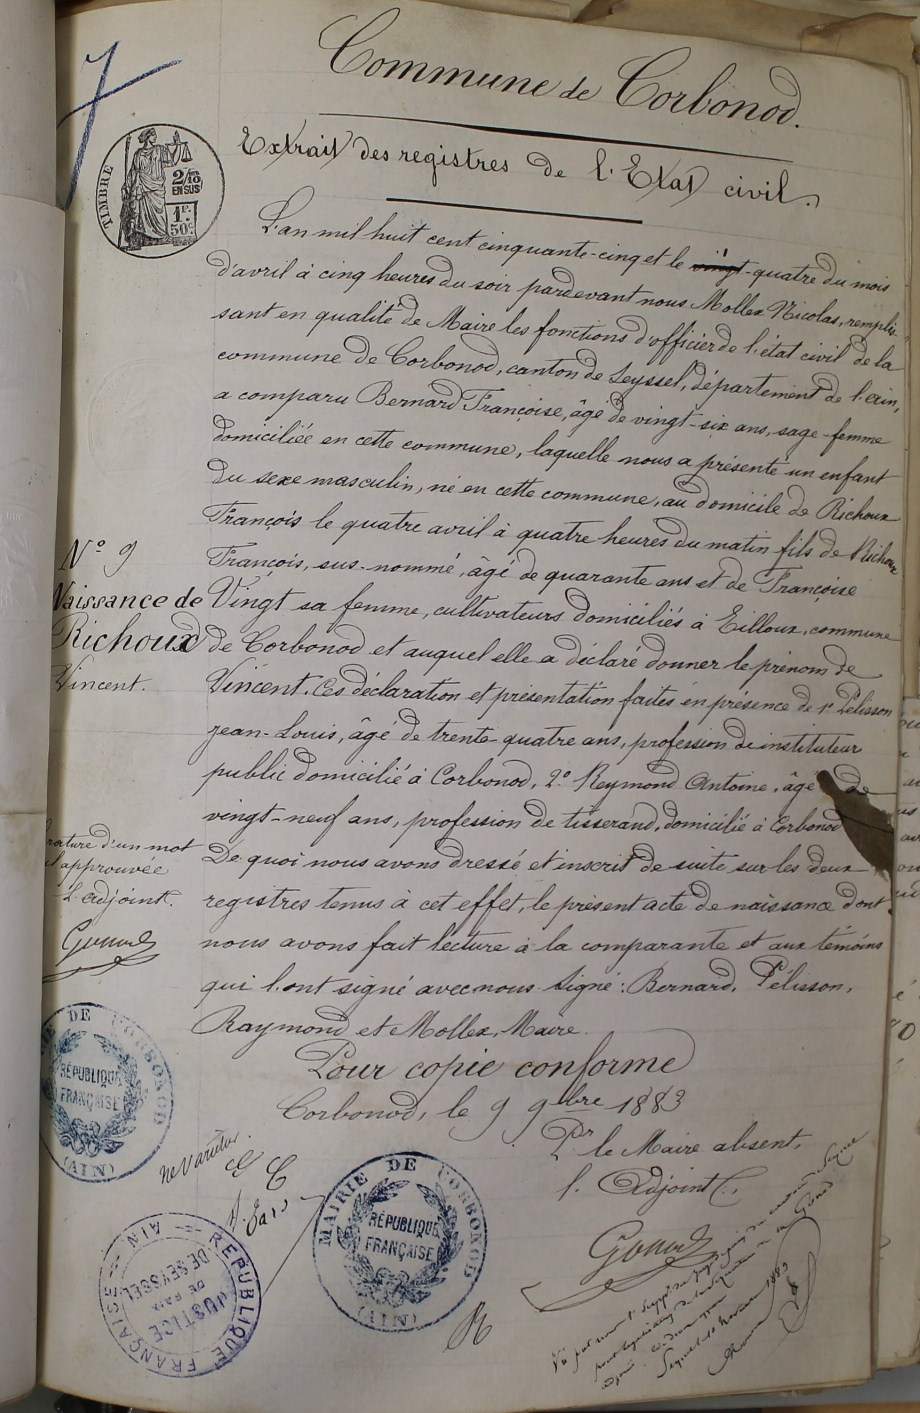 7
Commune de Corbonod.
Extrait des registres de l'Etat civil.
TIMBRE
2/10
EN SUS
1F.
50c
L'an mil huit cent cinquante-cinq et le vingt-quatre du mois
d'avril à cinq heures du soir pardevant nous Mollex Nicolas, remplis-
sant en qualité de Maire les fonctions d'officier de l'état civil de la
commune de Corbonod, canton de Seyssel, département de l'ain,
a comparu Bernard Françoise, âgé de vingt-six ans, sage-femme
domiciliée en cette commune, laquelle nous a présenté un enfant
du sexe masculin, né en cette commune, au domicile de Richoux
François le quatre avril à quatre heures du matin fils de Richoux
François, sus-nommé, âgé de quarante ans et de Françoise
Vingt sa femme, cultivateurs domiciliés à Eilloux, commune
de Corbonod et auquel elle a déclaré donner le prénom de
Vincent. Ces déclaration et présentation faites en présence de 1º Pélisson
jean-Louis, âgé de trente-quatre ans, profession de instituteur
public domicilié à Corbonod, 2.º Reymond Antoine, âgé de
vingt-neuf ans, profession de tisserand, domicilié à Corbonod
De quoi nous avons dressé et inscrit de suite sur les deux
registres tenus à cet effet, le présent acte de naissance dont
nous avons fait lecture à la comparante et aux témoins
qui l'ont signé avec nous Signé: Bernard, Pélisson,
Raymond et Mollex, Maire.
Pour copie conforme
Corbonod, le 9 9bre 1883
Pr le Maire absent,
l'Adjoint,
Nº 9
Naissance de
Richoux
Vincent.
rature d'un mot
approuvée
L'adjoint.
DE CORBONOD
RÉPUBLIQUE
FRANÇAISE
(AIN)
Ne Varietur
MAIRIE DE CORBONOD
RÉPUBLIQUE
FRANÇAISE
(AIN)
RÉPUBLIQUE FRANÇAISE
AIN
JUSTICE
DE PAIX
DE SEYSSEL